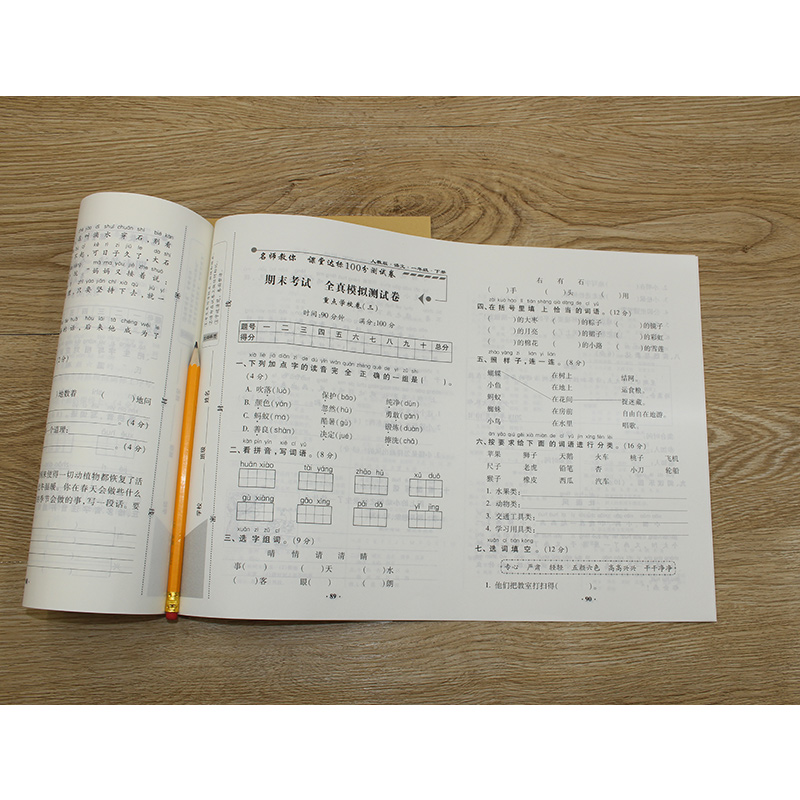 石，别看
可日子大了，大石
"妈妈又接着说：
只要坚持下去，就一
后来他成为了
（2分）
地数着（　　）地问
（4分）
个道理：
（4分）
来使得一切动植物都恢复了活
你在春天会做些什么
季节会做的事，写一段话。要
线
封
密
姓名
班级
学校
名师教你　课堂达标100分测试卷
人教版·语文·一年级·下册
期末考试　全真模拟测试卷
重点学校卷（三）
时间：90分钟　满分：100分
题号　一　二　三　四　五　六　七　八　九　十　总分
得分
一、下列加点字的读音完全正确的一组是（　　）。
（4分）
A. 吹落(luò)　保护(bǎo)　纯净(dūn)
B. 颜色(yán)　忽然(hū)　勇敢(gǎn)
C. 蚂蚁(mǎ)　酷暑(gǔ)　锻炼(duàn)
D. 善良(shàn)　决定(jué)　擦洗(chā)
kàn pīn yīn xiě cí yǔ
二、看拼音，写词语。（8分）
huān xiào　tài yáng　zhāo hū　xǔ duō
gù xiāng　gāo xìng　pái dā　yǐ jīng
xuǎn zì zǔ cí
三、选字组词。（9分）
晴　情　请　清　睛
事（　）　（　）天　（　）水
（　）客　眼（　）　（　）朗
·89·
右　有　石
（　）手　（　）头　（　）用
四、在括号里填上恰当的词语。（12分）
（　）的大枣　（　）的粽子　（　）的镜子
（　）的月亮　（　）的裙子　（　）的彩虹
（　）的棉花　（　）的小路　（　）的雪莲
zhào yàng zi lián yì lián
五、照样子，连一连。（8分）
蝴蝶　在树上　结网。
小鱼　在地上　运食粮。
蚂蚁　在花间　捉迷藏。
蜘蛛　在房前　自由自在地游。
小鸟　在水里　唱歌。
六、按要求给下面的词语进行分类。（16分）
苹果　狮子　天鹅　火车　桃子　飞机
尺子　老虎　铅笔　杏　小刀　轮船
猴子　橡皮　西瓜　汽车
1. 水果类：
2. 动物类：
3. 交通工具类：
4. 学习用具类：
xuǎn cí tián kòng
七、选词填空。（12分）
专心　严肃　轻轻　五颜六色　高高兴兴　干干净净
1. 他们把教室打扫得（　　）。
·90·